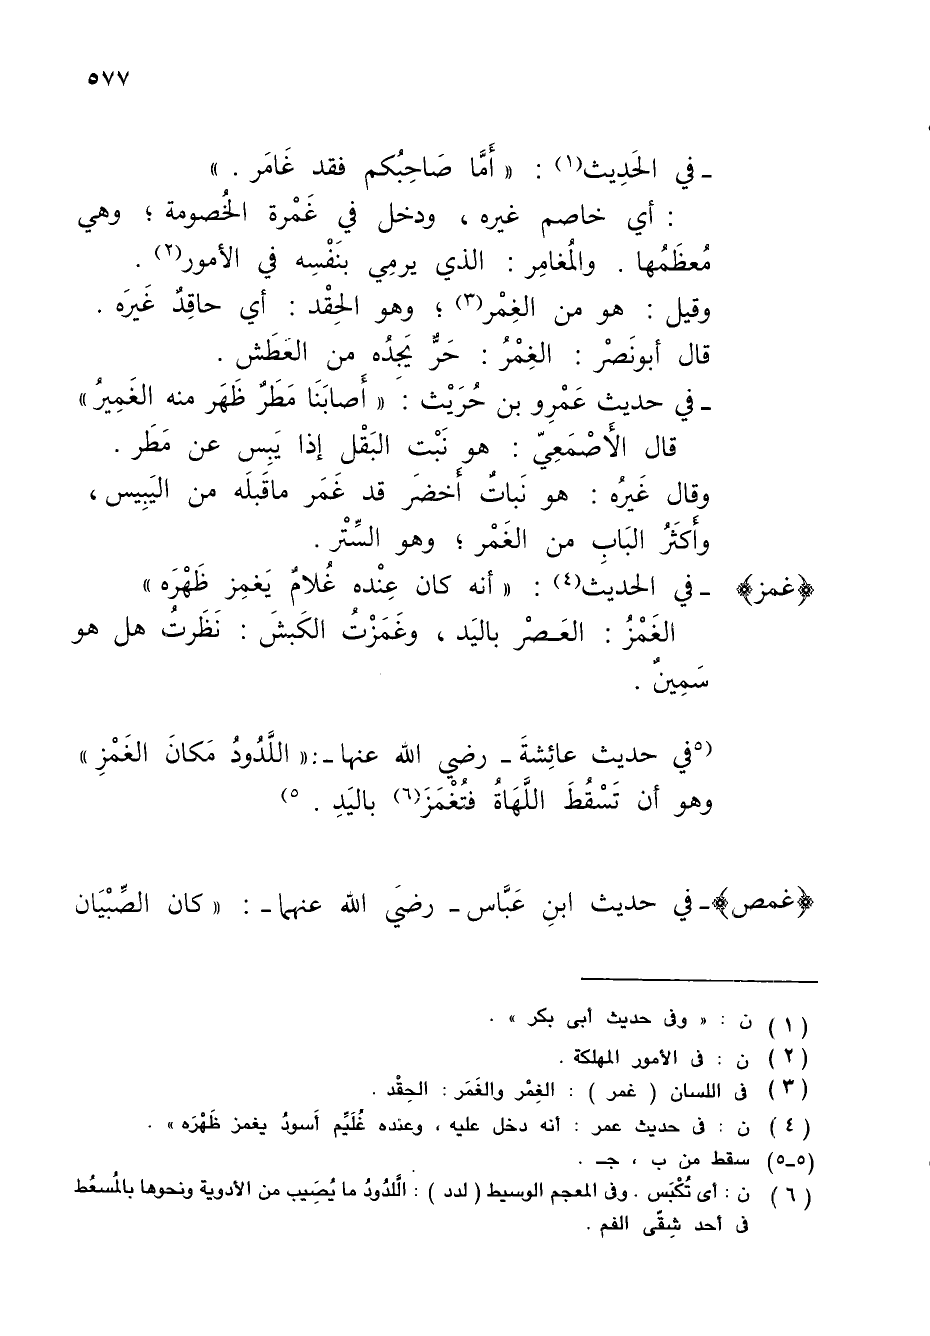 ٥٧٧
ـ في الحَدِيث(١) : « أَمَّا صَاحِبُكم فقد غَامَر . »
: أي خاصم غيره ، ودخل في غَمْرة الخُصومة ؛ وهي
مُعظَمُها . والُمغامِر : الذي يرمِي بنَفْسِه في الأمور(٢) .
وقيل : هو من الغِمْر(٣) ؛ وهو الحِقْد : أي حاقِدٌ غَيرَه .
قال أبونَصْر : الغِمْرُ : حَرٌّ يَجِدُه من العَطَش .
ـ في حديث عَمْرِو بن حُرَيْث : « أَصابَنَا مَطَرٌ ظَهَر منه الغَمِيرُ »
قال الأَصْمَعِيّ : هو نَبْت البَقْل إذا يَبِس عن مَطَر .
وقال غَيرُه : هو نَباتٌ أَخضَر قد غَمَر ماقَبلَه من اليَبِيس ،
وأَكثَرُ البَابِ من الغَمْر ؛ وهو السِّتْر .
﴿غمز﴾ ـ في الحديث(٤) : « أنه كان عِنْده غُلامٌ يَغمِز ظَهْرَه »
الغَمْزُ : العَصْرْ باليَد ، وغَمَزْتُ الكَبشَ : نَظَرتُ هل هو
سَمِينٌ .
(٥في حديث عائِشةَ ـ رضي الله عنها ـ:« اللَّدُودُ مَكانَ الغَمْزِ »
وهو أن تَسْقُطَ اللَّهَاةُ فتُغْمَزَ(٦) باليَدِ . ٥)
﴿غمص﴾ـ في حديث ابنِ عَبَّاس ـ رضَي الله عنهما ـ : « كان الصِّبْيَان
(١) ن : « وفى حديث أبى بكر » .
(٢) ن : فى الأمور المهلكة .
(٣) فى اللسان ( غمر ) : الغِمْر والغَمَر : الحِقْد .
(٤) ن : فى حديث عمر : أنه دخل عليه ، وعنده غُلَيِّم أَسودُ يغمز ظَهْرَه » .
(٥ـ٥) سقط من ب ، جـ .
(٦) ن : أى تُكْبَس . وفى المعجم الوسيط ( لدد ) : الَّلدُودُ ما يُصَيب من الأدوية ونحوها بالُمسعُط
فى أحد شِقّى الفم .